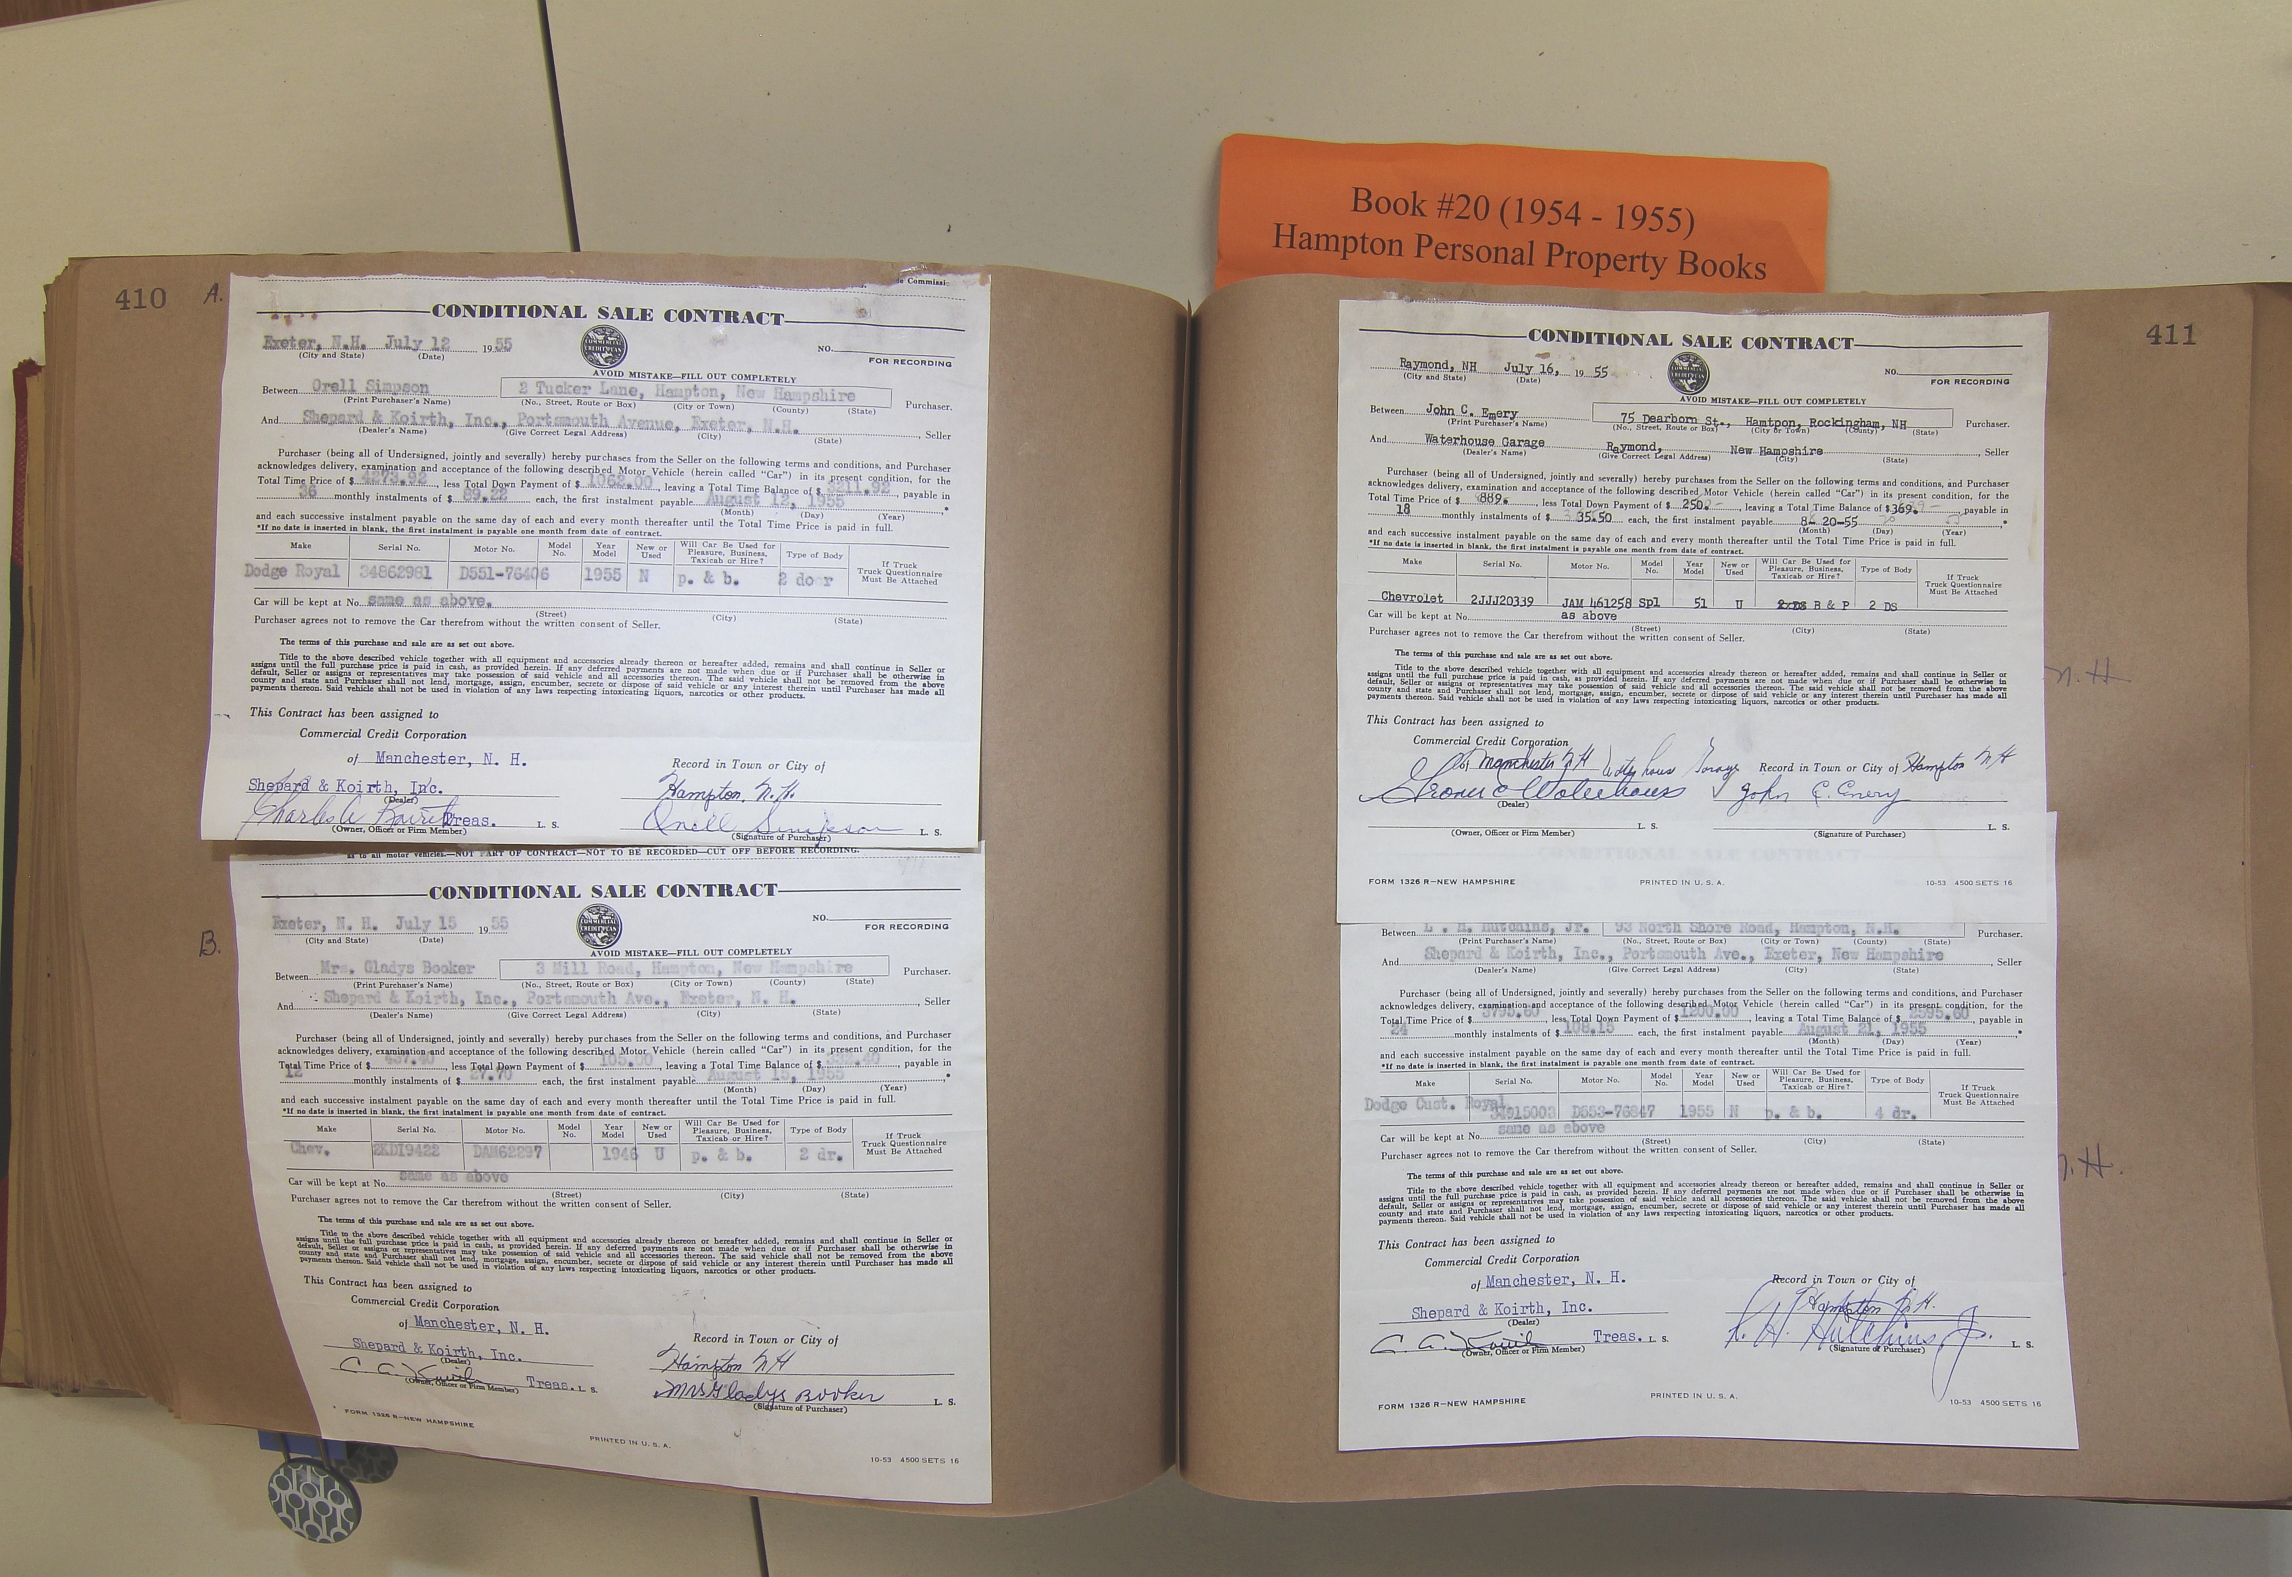 Book #20 (1954 - 1955)
Hampton Personal Property Books
410
A.
e Commissi
CONDITIONAL SALE CONTRACT
Exeter, N.H. July 12 19 55
(City and State) (Date)
COMMERCIAL CREDIT PLAN
NO.
FOR RECORDING
AVOID MISTAKE—FILL OUT COMPLETELY
Between Orell Simpson 2 Tucker Lane, Hampton, New Hampshire Purchaser.
(Print Purchaser's Name) (No., Street, Route or Box) (City or Town) (County) (State)
And Shepard & Koirth, Inc., Portsmouth Avenue, Exeter, N.H. , Seller
(Dealer's Name) (Give Correct Legal Address) (City) (State)
Purchaser (being all of Undersigned, jointly and severally) hereby purchases from the Seller on the following terms and conditions, and Purchaser
acknowledges delivery, examination and acceptance of the following described Motor Vehicle (herein called "Car") in its present condition, for the
Total Time Price of $ 4273.92 , less Total Down Payment of $ 1062.00 , leaving a Total Time Balance of $ 3211.92 , payable in
36 monthly instalments of $ 89.22 each, the first instalment payable August 12, 1955 .*
(Month) (Day) (Year)
and each successive instalment payable on the same day of each and every month thereafter until the Total Time Price is paid in full.
*If no date is inserted in blank, the first instalment is payable one month from date of contract.
Make Serial No. Motor No. Model No. Year Model New or Used Will Car Be Used for Pleasure, Business, Taxicab or Hire? Type of Body If Truck Truck Questionnaire Must Be Attached
Dodge Royal 34862981 D551-76406 1955 N p. & b. 2 door
Car will be kept at No. same as above.
(Street) (City) (State)
Purchaser agrees not to remove the Car therefrom without the written consent of Seller.
The terms of this purchase and sale are as set out above.
Title to the above described vehicle together with all equipment and accessories already thereon or hereafter added, remains and shall continue in Seller or
assigns until the full purchase price is paid in cash, as provided herein. If any deferred payments are not made when due or if Purchaser shall be otherwise in
default, Seller or assigns or representatives may take possession of said vehicle and all accessories thereon. The said vehicle shall not be removed from the above
county and state and Purchaser shall not lend, mortgage, assign, encumber, secrete or dispose of said vehicle or any interest therein until Purchaser has made all
payments thereon. Said vehicle shall not be used in violation of any laws respecting intoxicating liquors, narcotics or other products.
This Contract has been assigned to
Commercial Credit Corporation
of Manchester, N. H.
Record in Town or City of
Shepard & Koirth, Inc. Hampton, N.H.
(Dealer)
Treas. L. S. Orell Simpson L. S.
(Owner, Officer or Firm Member) (Signature of Purchaser)
B.
as to all motor vehicles.—NOT PART OF CONTRACT—NOT TO BE RECORDED—CUT OFF BEFORE RECORDING.
CONDITIONAL SALE CONTRACT
Exeter, N. H. July 15 19 55
(City and State) (Date)
COMMERCIAL CREDIT PLAN
NO.
FOR RECORDING
AVOID MISTAKE—FILL OUT COMPLETELY
Between Mrs. Gladys Booker 3 Mill Road, Hampton, New Hampshire Purchaser.
(Print Purchaser's Name) (No., Street, Route or Box) (City or Town) (County) (State)
And Shepard & Koirth, Inc., Portsmouth Ave., Exeter, N. H. , Seller
(Dealer's Name) (Give Correct Legal Address) (City) (State)
Purchaser (being all of Undersigned, jointly and severally) hereby purchases from the Seller on the following terms and conditions, and Purchaser
acknowledges delivery, examination and acceptance of the following described Motor Vehicle (herein called "Car") in its present condition, for the
Total Time Price of $ 437.40 , less Total Down Payment of $ 105.00 , leaving a Total Time Balance of $ 332.40 , payable in
12 monthly instalments of $ 27.70 each, the first instalment payable August 15, 1955 .*
(Month) (Day) (Year)
and each successive instalment payable on the same day of each and every month thereafter until the Total Time Price is paid in full.
*If no date is inserted in blank, the first instalment is payable one month from date of contract.
Make Serial No. Motor No. Model No. Year Model New or Used Will Car Be Used for Pleasure, Business, Taxicab or Hire? Type of Body If Truck Truck Questionnaire Must Be Attached
Chev. 2KDI9422 DAM62297 1946 U p. & b. 2 dr.
Car will be kept at No. same as above
(Street) (City) (State)
Purchaser agrees not to remove the Car therefrom without the written consent of Seller.
The terms of this purchase and sale are as set out above.
Title to the above described vehicle together with all equipment and accessories already thereon or hereafter added, remains and shall continue in Seller or
assigns until the full purchase price is paid in cash, as provided herein. If any deferred payments are not made when due or if Purchaser shall be otherwise in
default, Seller or assigns or representatives may take possession of said vehicle and all accessories thereon. The said vehicle shall not be removed from the above
county and state and Purchaser shall not lend, mortgage, assign, encumber, secrete or dispose of said vehicle or any interest therein until Purchaser has made all
payments thereon. Said vehicle shall not be used in violation of any laws respecting intoxicating liquors, narcotics or other products.
This Contract has been assigned to
Commercial Credit Corporation
of Manchester, N. H.
Record in Town or City of
Shepard & Koirth, Inc. Hampton NH
(Dealer)
Treas. L. S. Mrs Gladys Booker L. S.
(Owner, Officer or Firm Member) (Signature of Purchaser)
FORM 1326 R—NEW HAMPSHIRE PRINTED IN U. S. A. 10-53 4500 SETS 16
411
CONDITIONAL SALE CONTRACT
Raymond, NH July 16, 19 55
(City and State) (Date)
COMMERCIAL CREDIT PLAN
NO.
FOR RECORDING
AVOID MISTAKE—FILL OUT COMPLETELY
Between John C. Emery 75 Dearborn St., Hamtpon, Rockingham, NH Purchaser.
(Print Purchaser's Name) (No., Street, Route or Box) (City or Town) (County) (State)
And Waterhouse Garage Raymond, New Hampshire , Seller
(Dealer's Name) (Give Correct Legal Address) (City) (State)
Purchaser (being all of Undersigned, jointly and severally) hereby purchases from the Seller on the following terms and conditions, and Purchaser
acknowledges delivery, examination and acceptance of the following described Motor Vehicle (herein called "Car") in its present condition, for the
Total Time Price of $ 889. less Total Down Payment of $ 250. , leaving a Total Time Balance of $ 369. payable in
18 monthly instalments of $ 35.50 each, the first instalment payable 8- 20-55 .*
(Month) (Day) (Year)
and each successive instalment payable on the same day of each and every month thereafter until the Total Time Price is paid in full.
*If no date is inserted in blank, the first instalment is payable one month from date of contract.
Make Serial No. Motor No. Model No. Year Model New or Used Will Car Be Used for Pleasure, Business, Taxicab or Hire? Type of Body If Truck Truck Questionnaire Must Be Attached
Chevrolet 2JJJ20339 JAM 461258 Spl 51 U B & P 2 DS
Car will be kept at No. as above
(Street) (City) (State)
Purchaser agrees not to remove the Car therefrom without the written consent of Seller.
The terms of this purchase and sale are as set out above.
Title to the above described vehicle together with all equipment and accessories already thereon or hereafter added, remains and shall continue in Seller or
assigns until the full purchase price is paid in cash, as provided herein. If any deferred payments are not made when due or if Purchaser shall be otherwise in
default, Seller or assigns or representatives may take possession of said vehicle and all accessories thereon. The said vehicle shall not be removed from the above
county and state and Purchaser shall not lend, mortgage, assign, encumber, secrete or dispose of said vehicle or any interest therein until Purchaser has made all
payments thereon. Said vehicle shall not be used in violation of any laws respecting intoxicating liquors, narcotics or other products.
n. H
This Contract has been assigned to
Commercial Credit Corporation
of Manchester NH Record in Town or City of Hampton NH
Waterhouse John C. Emery
(Dealer)
L. S. L. S.
(Owner, Officer or Firm Member) (Signature of Purchaser)
FORM 1326 R—NEW HAMPSHIRE PRINTED IN U. S. A. 10-53 4500 SETS 16
Between L. H. Hutchins, Jr. 93 North Shore Road, Hampton, N.H. Purchaser.
(Print Purchaser's Name) (No., Street, Route or Box) (City or Town) (County) (State)
And Shepard & Koirth, Inc., Portsmouth Ave., Exeter, New Hampshire , Seller
(Dealer's Name) (Give Correct Legal Address) (City) (State)
Purchaser (being all of Undersigned, jointly and severally) hereby purchases from the Seller on the following terms and conditions, and Purchaser
acknowledges delivery, examination and acceptance of the following described Motor Vehicle (herein called "Car") in its present condition, for the
Total Time Price of $ 3795.60 , less Total Down Payment of $ 1200.00 , leaving a Total Time Balance of $ 2595.60 , payable in
24 monthly instalments of $ 108.15 each, the first instalment payable August 21, 1955 .*
(Month) (Day) (Year)
and each successive instalment payable on the same day of each and every month thereafter until the Total Time Price is paid in full.
*If no date is inserted in blank, the first instalment is payable one month from date of contract.
Make Serial No. Motor No. Model No. Year Model New or Used Will Car Be Used for Pleasure, Business, Taxicab or Hire? Type of Body If Truck Truck Questionnaire Must Be Attached
Dodge Cust. Royal 34915003 D553-76847 1955 N p. & b. 4 dr.
Car will be kept at No. same as above
(Street) (City) (State)
Purchaser agrees not to remove the Car therefrom without the written consent of Seller.
n. H.
The terms of this purchase and sale are as set out above.
Title to the above described vehicle together with all equipment and accessories already thereon or hereafter added, remains and shall continue in Seller or
assigns until the full purchase price is paid in cash, as provided herein. If any deferred payments are not made when due or if Purchaser shall be otherwise in
default, Seller or assigns or representatives may take possession of said vehicle and all accessories thereon. The said vehicle shall not be removed from the above
county and state and Purchaser shall not lend, mortgage, assign, encumber, secrete or dispose of said vehicle or any interest therein until Purchaser has made all
payments thereon. Said vehicle shall not be used in violation of any laws respecting intoxicating liquors, narcotics or other products.
This Contract has been assigned to
Commercial Credit Corporation
of Manchester, N. H. Record in Town or City of
Shepard & Koirth, Inc. Hampton N.H.
(Dealer)
Treas. L. S. L. H. Hutchins Jr. L. S.
(Owner, Officer or Firm Member) (Signature of Purchaser)
FORM 1326 R—NEW HAMPSHIRE PRINTED IN U. S. A. 10-53 4500 SETS 16